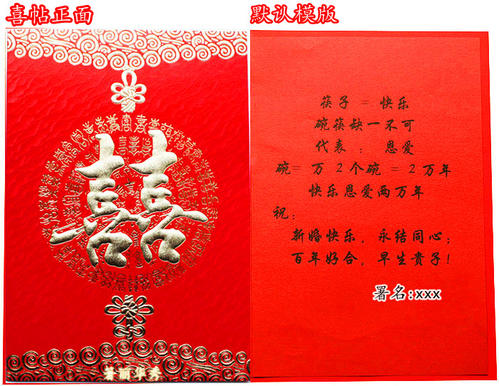 喜帖正面
囍
默认模版
筷子 = 快乐
碗筷缺一不可
代表: 恩爱
碗= 万 2个碗 = 2万年
快乐恩爱两万年
祝:
新婚快乐, 永结同心;
百年好合, 早生貴子!
署名:xxx